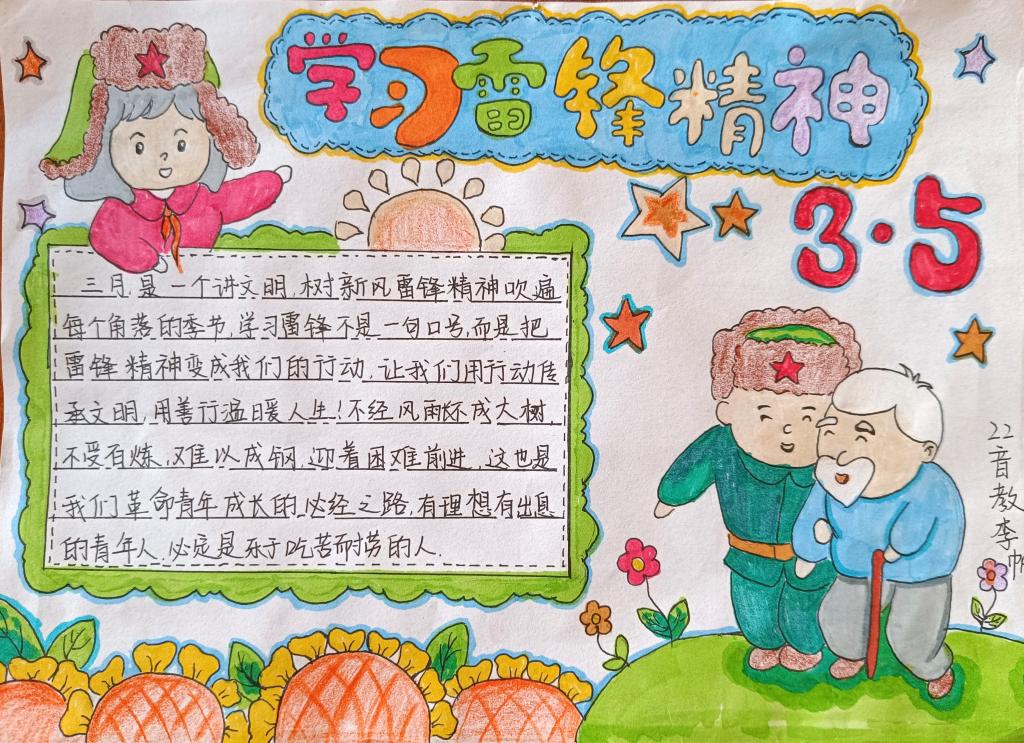 学习雷锋精神
3·5
三月,是一个讲文明,树新风雷锋精神吹遍
每个角落的季节,学习雷锋不是一句口号,而是把
雷锋精神变成我们的行动,让我们用行动传
承文明,用善行温暖人生!不经风雨怀成大树,
不受百炼,难以成钢,迎着困难前进,这也是
我们革命青年成长的必经之路,有理想有出息
的青年人,必定是乐于吃苦耐劳的人.
22音教李帆